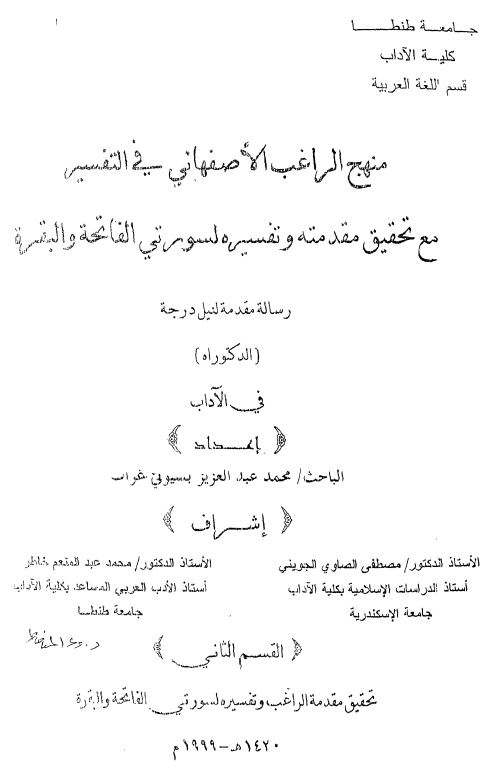 جامعة طنطا
كلية الآداب
قسم اللغة العربية
منهج الراغب الأصفهاني في التفسير
مع تحقيق مقدمته وتفسيره لسورتي الفاتحة والبقرة
رسالة مقدمة لنيل درجة
(الدكتوراه)
في الآداب
﴿ إعداد ﴾
الباحث/ محمد عبد العزيز بسيوني غراب
﴿ إشراف ﴾
الأستاذ الدكتور/ مصطفى الصاوي الجويني
أستاذ الدراسات الإسلامية بكلية الآداب
جامعة الإسكندرية
الأستاذ الدكتور/ محمد عبد المنعم خاطر
أستاذ الأدب العربي المساعد بكلية الآداب
جامعة طنطا
﴿ القسم الثاني ﴾
تحقيق مقدمة الراغب وتفسيره لسورتي الفاتحة والبقرة
١٤٢٠هـ-١٩٩٩م